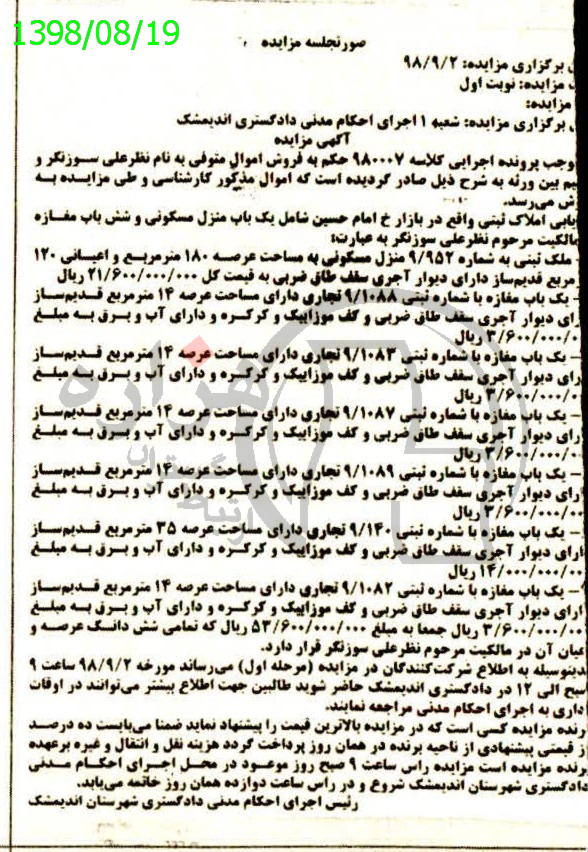 1398/08/19
صورتجلسه مزایده
برگزاری مزایده: ۹۸/۹/۲
مزایده: نوبت اول
مزایده:
برگزاری مزایده: شعبه ۱ اجرای احکام مدنی دادگستری اندیمشک
آگهی مزایده
موجب پرونده اجرایی کلاسه ۹۸۰۰۰۷ حکم به فروش اموال متوفی به نام نظرعلی سوزنگر و
بین ورثه به شرح ذیل صادر گردیده است که اموال مذکور کارشناسی و طی مزایده به
می‌رسد.
املاک ثبتی واقع در بازار خ امام حسین شامل یک باب منزل مسکونی و شش باب مغازه
مالکیت مرحوم نظرعلی سوزنگر به عبارت:
ملک ثبتی به شماره ۹/۹۵۲ منزل مسکونی به مساحت عرصه ۱۸۰ مترمربع و اعیانی ۱۲۰
قدیم‌ساز دارای دیوار آجری سقف طاق ضربی به قیمت کل ۲۱/۶۰۰/۰۰۰/۰۰۰ ریال
- یک باب مغازه با شماره ثبتی ۹/۱۰۸۸ تجاری دارای مساحت عرصه ۱۴ مترمربع قدیم‌ساز
دیوار آجری سقف طاق ضربی و کف موزاییک و کرکره و دارای آب و برق به مبلغ
۳/۶۰۰/۰۰۰/۰ ریال
- یک باب مغازه با شماره ثبتی ۹/۱۰۸۳ تجاری دارای مساحت عرصه ۱۴ مترمربع قدیم‌ساز
دیوار آجری سقف طاق ضربی و کف موزاییک و کرکره و دارای آب و برق به مبلغ
۳/۶۰۰/۰۰۰/۰ ریال
- یک باب مغازه با شماره ثبتی ۹/۱۰۸۷ تجاری دارای مساحت عرصه ۱۴ مترمربع قدیم‌ساز
دیوار آجری سقف طاق ضربی و کف موزاییک و کرکره و دارای آب و برق به مبلغ
۳/۶۰۰/۰۰۰/۰۰ ریال
- یک باب مغازه با شماره ثبتی ۹/۱۰۸۹ تجاری دارای مساحت عرصه ۱۴ مترمربع قدیم‌ساز
دیوار آجری سقف طاق ضربی و کف موزاییک و کرکره و دارای آب و برق به مبلغ
۳/۶۰۰/۰۰۰/۰۰ ریال
- یک باب مغازه با شماره ثبتی ۹/۱۴۰ تجاری دارای مساحت عرصه ۳۵ مترمربع قدیم‌ساز
دارای دیوار آجری سقف طاق ضربی و کف موزاییک و کرکره و دارای آب و برق به مبلغ
۱۴/۰۰۰/۰۰۰/۰۰ ریال
- یک باب مغازه با شماره ثبتی ۹/۱۰۸۲ تجاری دارای مساحت عرصه ۱۴ مترمربع قدیم‌ساز
دارای دیوار آجری سقف طاق ضربی و کف موزاییک و کرکره و دارای آب و برق به مبلغ
۳/۶۰۰/۰۰۰/۰۰ ریال جمعا به مبلغ ۵۳/۶۰۰/۰۰۰/۰۰۰ ریال که تمامی شش دانگ عرصه و
عیان آن در مالکیت مرحوم نظرعلی سوزنگر قرار دارد.
بدینوسیله به اطلاع شرکت‌کنندگان در مزایده (مرحله اول) می‌رساند مورخه ۹۸/۹/۲ ساعت ۹
صبح الی ۱۲ در دادگستری اندیمشک حاضر شوید طالبین جهت اطلاع بیشتر می‌توانند در اوقات
داری به اجرای احکام مدنی مراجعه نمایند.
رنده مزایده کسی است که در مزایده بالاترین قیمت را پیشنهاد نماید ضمنا می‌بایست ده درصد
از قیمتی پیشنهادی از ناحیه برنده در همان روز پرداخت گردد هزینه نقل و انتقال و غیره برعهده
رنده مزایده است مزایده راس ساعت ۹ صبح روز موعود در محل اجرای احکام مدنی
دادگستری شهرستان اندیمشک شروع و در راس ساعت دوازده همان روز خاتمه می‌یابد.
رئیس اجرای احکام مدنی دادگستری شهرستان اندیمشک
هزاره